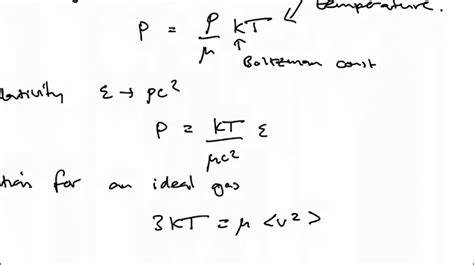 temperature.
P = ρ/μ kT
Boltzman const
lativity ε → ρc²
P = kT/μc² ε
tion for an ideal gas
3kT = μ <v²>